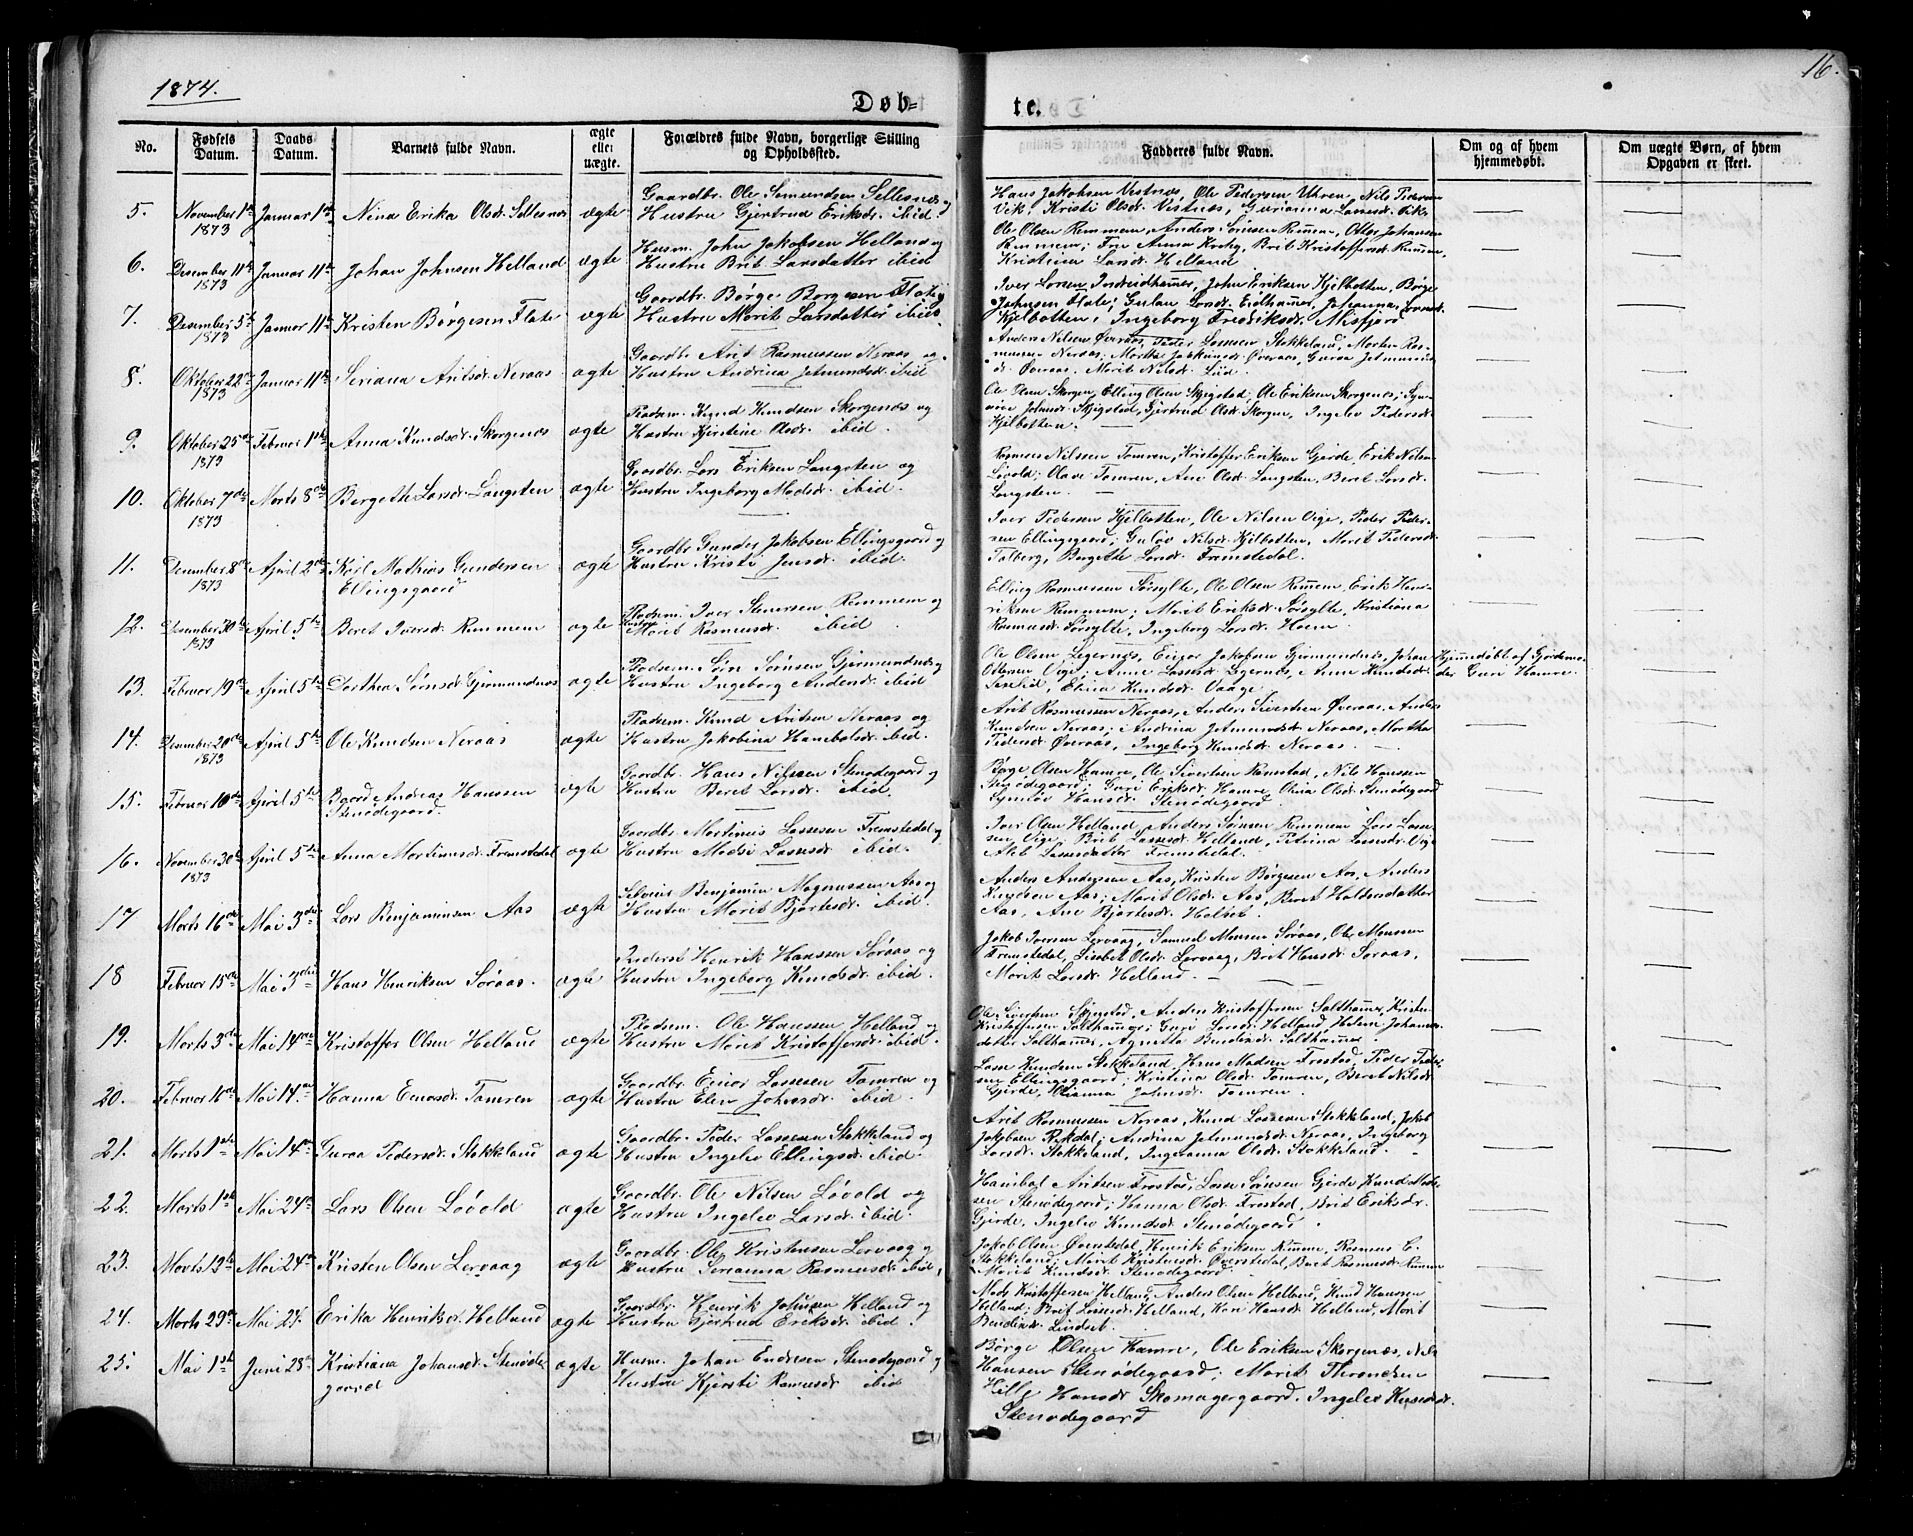 1874.
16.
Døb=
te.
No.
Fødsels Datum.
Daabs Datum.
Barnets fulde Navn.
ægte eller uægte.
Forældres fulde Navn, borgerlige Stilling og Opholdssted.
Fadderes fulde Navn.
Om og af hvem hjemmedøbt.
Om uægte Børn, af hvem Opgaven er skeet.
5. November 1ste 1873 Januar 1ste Nina Erika Olsdr. Sellesnæs ægte
Gaardbr. Ole Semundsen Sellesnæs og
Hustru Gjertrud Eriksdr. ibid.
Hans Jakobsen Vestnæs, Ole Pedersen Uhren, Nils Pedersen
Vik; Kristi Olsdr. Vestnæs, Gurianna Lassesdr. Vik.
6. Desember 11te 1873 Januar 11te Johan Johnsen Helland ægte
Husm. John Jakobsen Helland og
Hustru Brit Larsdatter ibid
Ole Olsen Remmem, Anders Sørnsen Remmem, Ole Johansen
Remmem; Fru Anna Krohg, Brit Kristoffersdr. Remmem,
Kristina Larsdr. Helland
7. Desember 5te 1873 Januar 11te Kristen Børgesen Flate ægte
Gaardbr. Børge Børgesen Flate og
Hustru Marit Larsdatter ibid.
Iver Larsen Indreidhammer, John Eriksen Kjelbotten, Børge
Johnsen Flate; Gulau Larsdr. Eidhammer, Johanna
Kjelbotten, Ingeborg Fredriksdr. Misfjord
8. Oktober 22de 1873 Januar 11te Seriana Aritsdr. Neraas ægte
Gaardbr. Arit Rasmussen Neraas og
Hustru Andrina Jetmundsdr. ibid
Anders Nilsen Øveraas, Peder Lassesen Stokkeland, Morten Ras-
mussen Neraas; Martha Jetmundsdr. Øveraas, Guraa Jetmunds-
dr. Øveraas, Marit Nilsdr. Lied.
9. Oktober 25de 1873 Februar 1ste Anna Knudsdr. Skorgenæs ægte
Pladsem. Knud Knudsen Skorgenæs og
Hustru Kjerstine Olsdr. ibid.
Ole Olsen Skorgen, Elling Olsen Skjegstad, Ole Eriksen Skorgenes; Syn-
Johnsdr. Skjegstad, Gjertrud Olsdr. Skorgen, Ingelev Pedersdr.
Kjelbotten.
10. Oktober 7de 1873 Marts 8de Bergethe Larsdr. Langsten ægte
Gaardbr. Lars Eriksen Langsten og
Hustru Ingeborg Madsdr. ibid
Rasmus Nilssen Tomren, Kristoffer Eriksen Gjerde, Erik Nilsen
Løvold; Olave Tomren, Ane Olsdr. Langsten, Beret Larsdr.
Langsten.
11. Desember 8de 1873 April 2den Karl Mathias Gundersen
Ellingsgaard ægte
Gaardbr. Gunder Jakobsen Ellingsgaard og
Hustru Kristi Jensdr. ibid.
Iver Pedersen Kjelbotten, Ole Nilsen Vige, Peder Peder-
sen Ellingsgaard; Guløv Nilsdr. Kjelbotten, Marit Pedersdr.
Talberg, Bergethe Larsdr. Fremstedal.
12. Desember 30te 1873 April 5te Beret Iversdr. Remmem ægte
Pladsem. Iver Stenersen Remmem og
Hustru Marit Rasmusdr. ibid
Elling Rasmussen Sørsylte, Ole Olsen Remmem, Erik Hen-
riksen Remmem; Marit Eriksdr. Sørsylte, Kristiana
Rasmusdr. Sørsylte, Ingeborg Larsdr. Hoem.
13. Februar 19de April 5te Dorthea Sørnsdr. Gjermundnæs ægte
Pladsem. Sørn Sørnsen Gjermundnæs og
Hustru Ingeborg Andersdr. ibid
Ole Olsen Legernæs, Einar Jakobsen Gjermundnæs, Johan
Ottersen Vige; Anne Lassesdr. Legernæs, Anne Knudsdr.
Elina Knudsdr. Vaage.
Hjemmedøbt af Gjordemo-
der Guri Hamre.
14. Desember 20de 1873 April 5te Ole Knudsen Neraas ægte
Pladsem. Knud Aritsen Neraas og
Hustru Jakobina Hanibalsdr. ibid.
Arit Rasmussen Neraas, Anders Sivertsen Øveraas, Anders
Knudsen Neraas; Andrina Jetmundsdr. Neraas, Martha
Pedersdr. Øveraas, Ingeborg Knudsdr. Neraas.
15. Februar 10de April 5te Baard Andreas Hanssen
Stenødegaard. ægte
Gaardbr. Hans Nilssen Stenødegaard og
Hustru Beret Larsdr. ibid.
Børge Olsen Hamre, Ole Sivertsen Ramstad, Nils Hanssen
Stenødegaard; Guri Eriksdr. Hamre, Olina Olsdr. Stenødegaard
Synnøv Hansdr. Stenødegaard.
16. November 30te 1873 April 5te Anna Martinusdr. Fremstedal ægte
Gaardbr. Martinus Lassesen Fremstedal og
Hustru Madsi Lassesdr. ibid.
Iver Olsen Helland, Anders Sørnsen Remmem, Lars Lasse-
sen Vige; Brit Lassesdr. Helland, Petrina Lassesdr. Vige
Lassesdatter Fremstedal.
17 Marts 16de Mai 3die Lars Benjaminsen Aas ægte
Selveier Benjamin Magnussen Aas og
Hustru Marit Bjørtesdr. ibid.
Anders Andersen Aas, Kristen Børgesen Aas, Anders
Knudsen Aas; Marit Olsdr. Aas, Beret Haldorsdatter
Aas, Ane Bjørtesdr. Holset.
18 Februar 15de Mai 3die Hans Henriksen Søraas. ægte
Inderst Henrik Hanssen Søraas og
Hustru Ingeborg Knudsdr. ibid.
Jakob Iversen Lervaag, Samuel Monsen Søraas, Ole Monssen
Fremstedal, Lisabet Olsdr. Lervaag, Brit Hansdr. Søraas,
Marit Larsdr. Helland.
19. Marts 3die Mai 14de Kristoffer Olsen Helland ægte
Pladsem. Ole Hanssen Helland og
Hustru Marit Kristoffersdr. ibid.
Ole Sivertsen Skjegstad, Anders Kristoffersen Salthammer, Kristen
Kristoffersen Salthammer; Guri Larsdr. Helland, Helena Johannes-
datter Salthammer, Agnetta Bendixdr. Salthammer.
20. Februar 10de Mai 14. Hanna Einarsdr. Tomren ægte
Gaardbr. Einar Lassesen Tomren og
Hustru Elen Johnsdr. ibid.
Lasse Knudsen Stokkeland, Hans Madsen Frostad, Peder Peder-
sen Ellingsgaard; Kristina Olsdr. Tomren, Beret Nilsdr.
Gjerde, Johnsdr. Tomren.
21. Marts 1ste Mai 14de Guraa Pedersdr. Stokkeland ægte
Gaardbr. Peder Lassesen Stokkeland og
Hustru Ingelev Ellingsdr. ibid.
Arit Rasmussen Neraas, Knud Lassesen Stokkeland, Jakob
Jakobsen Rekdal; Andrina Jetmundsdr. Neraas, Ingeborg
Larsdr. Stokkeland, Ingeranna Olsdr. Stokkeland.
22. Marts 1ste Mai 24de Lars Olsen Løvold ægte
Gaardbr. Ole Nilsen Løvold og
Hustru Ingelev Larsdr. ibid.
Hanibal Aritsen Frostad, Lasse Sørnsen Gjerde, Knud Mads-
sen Stenødegaard; Hanna Olsdr. Frostad, Brit Eriksdr.
Gjerde, Ingelev Knudsdr. Stenødegaard.
23. Marts 12te Mai 24de Kristen Olsen Lervaag ægte
Gaardbr. Ole Kristensen Lervaag og
Hustru Serianna Rasmusdr. ibid.
Jakob Olsen Øverstedal, Henrik Eriksen Remmem, Rasmus E.
Stokkeland; Marit Kristensdr. Øverstedal, Brit Rasmusdr. Remmem
Marit Knudsdr. Stenødegaard.
24. Marts 29de Mai 24. Erika Henriksdr. Helland ægte
Gaardbr. Henrik Johnsen Helland og
Hustru Gjertrud Eriksdr. ibid.
Mads Kristoffersen Helland, Anders Olsen Helland, Knud Hanssen
Helland; Brit Lassesdr. Helland, Kari Hansdr. Helland, Marit
Bendixdr. Lindset.
25. Mai 1ste Juni 28de Kristiana Johansdr. Stenøde-
gaard ægte
Husm. Johan Endresen Stenødegaard og
Hustru Kjersti Rasmusdr. ibid
Børge Olsen Hamre, Ole Eriksen Skorgenæs, Nils
Hansen Stenødegaard; Marit Thronsdsen
Hille Hansdr. Skomagergaard. Ingelev Knudsdr.
Stenødegaard